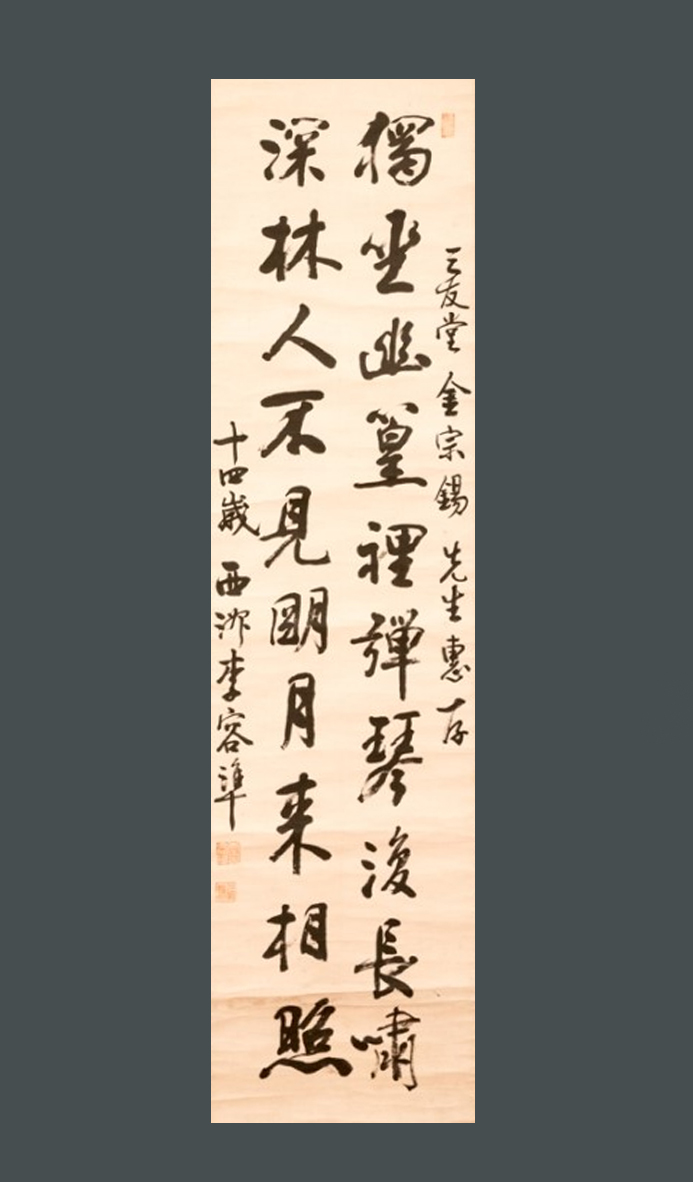 三友堂 金宗錫 先生惠存
獨坐幽篁裡彈琴復長嘯
深林人不見朙月来相照
十四歲 西 李容準